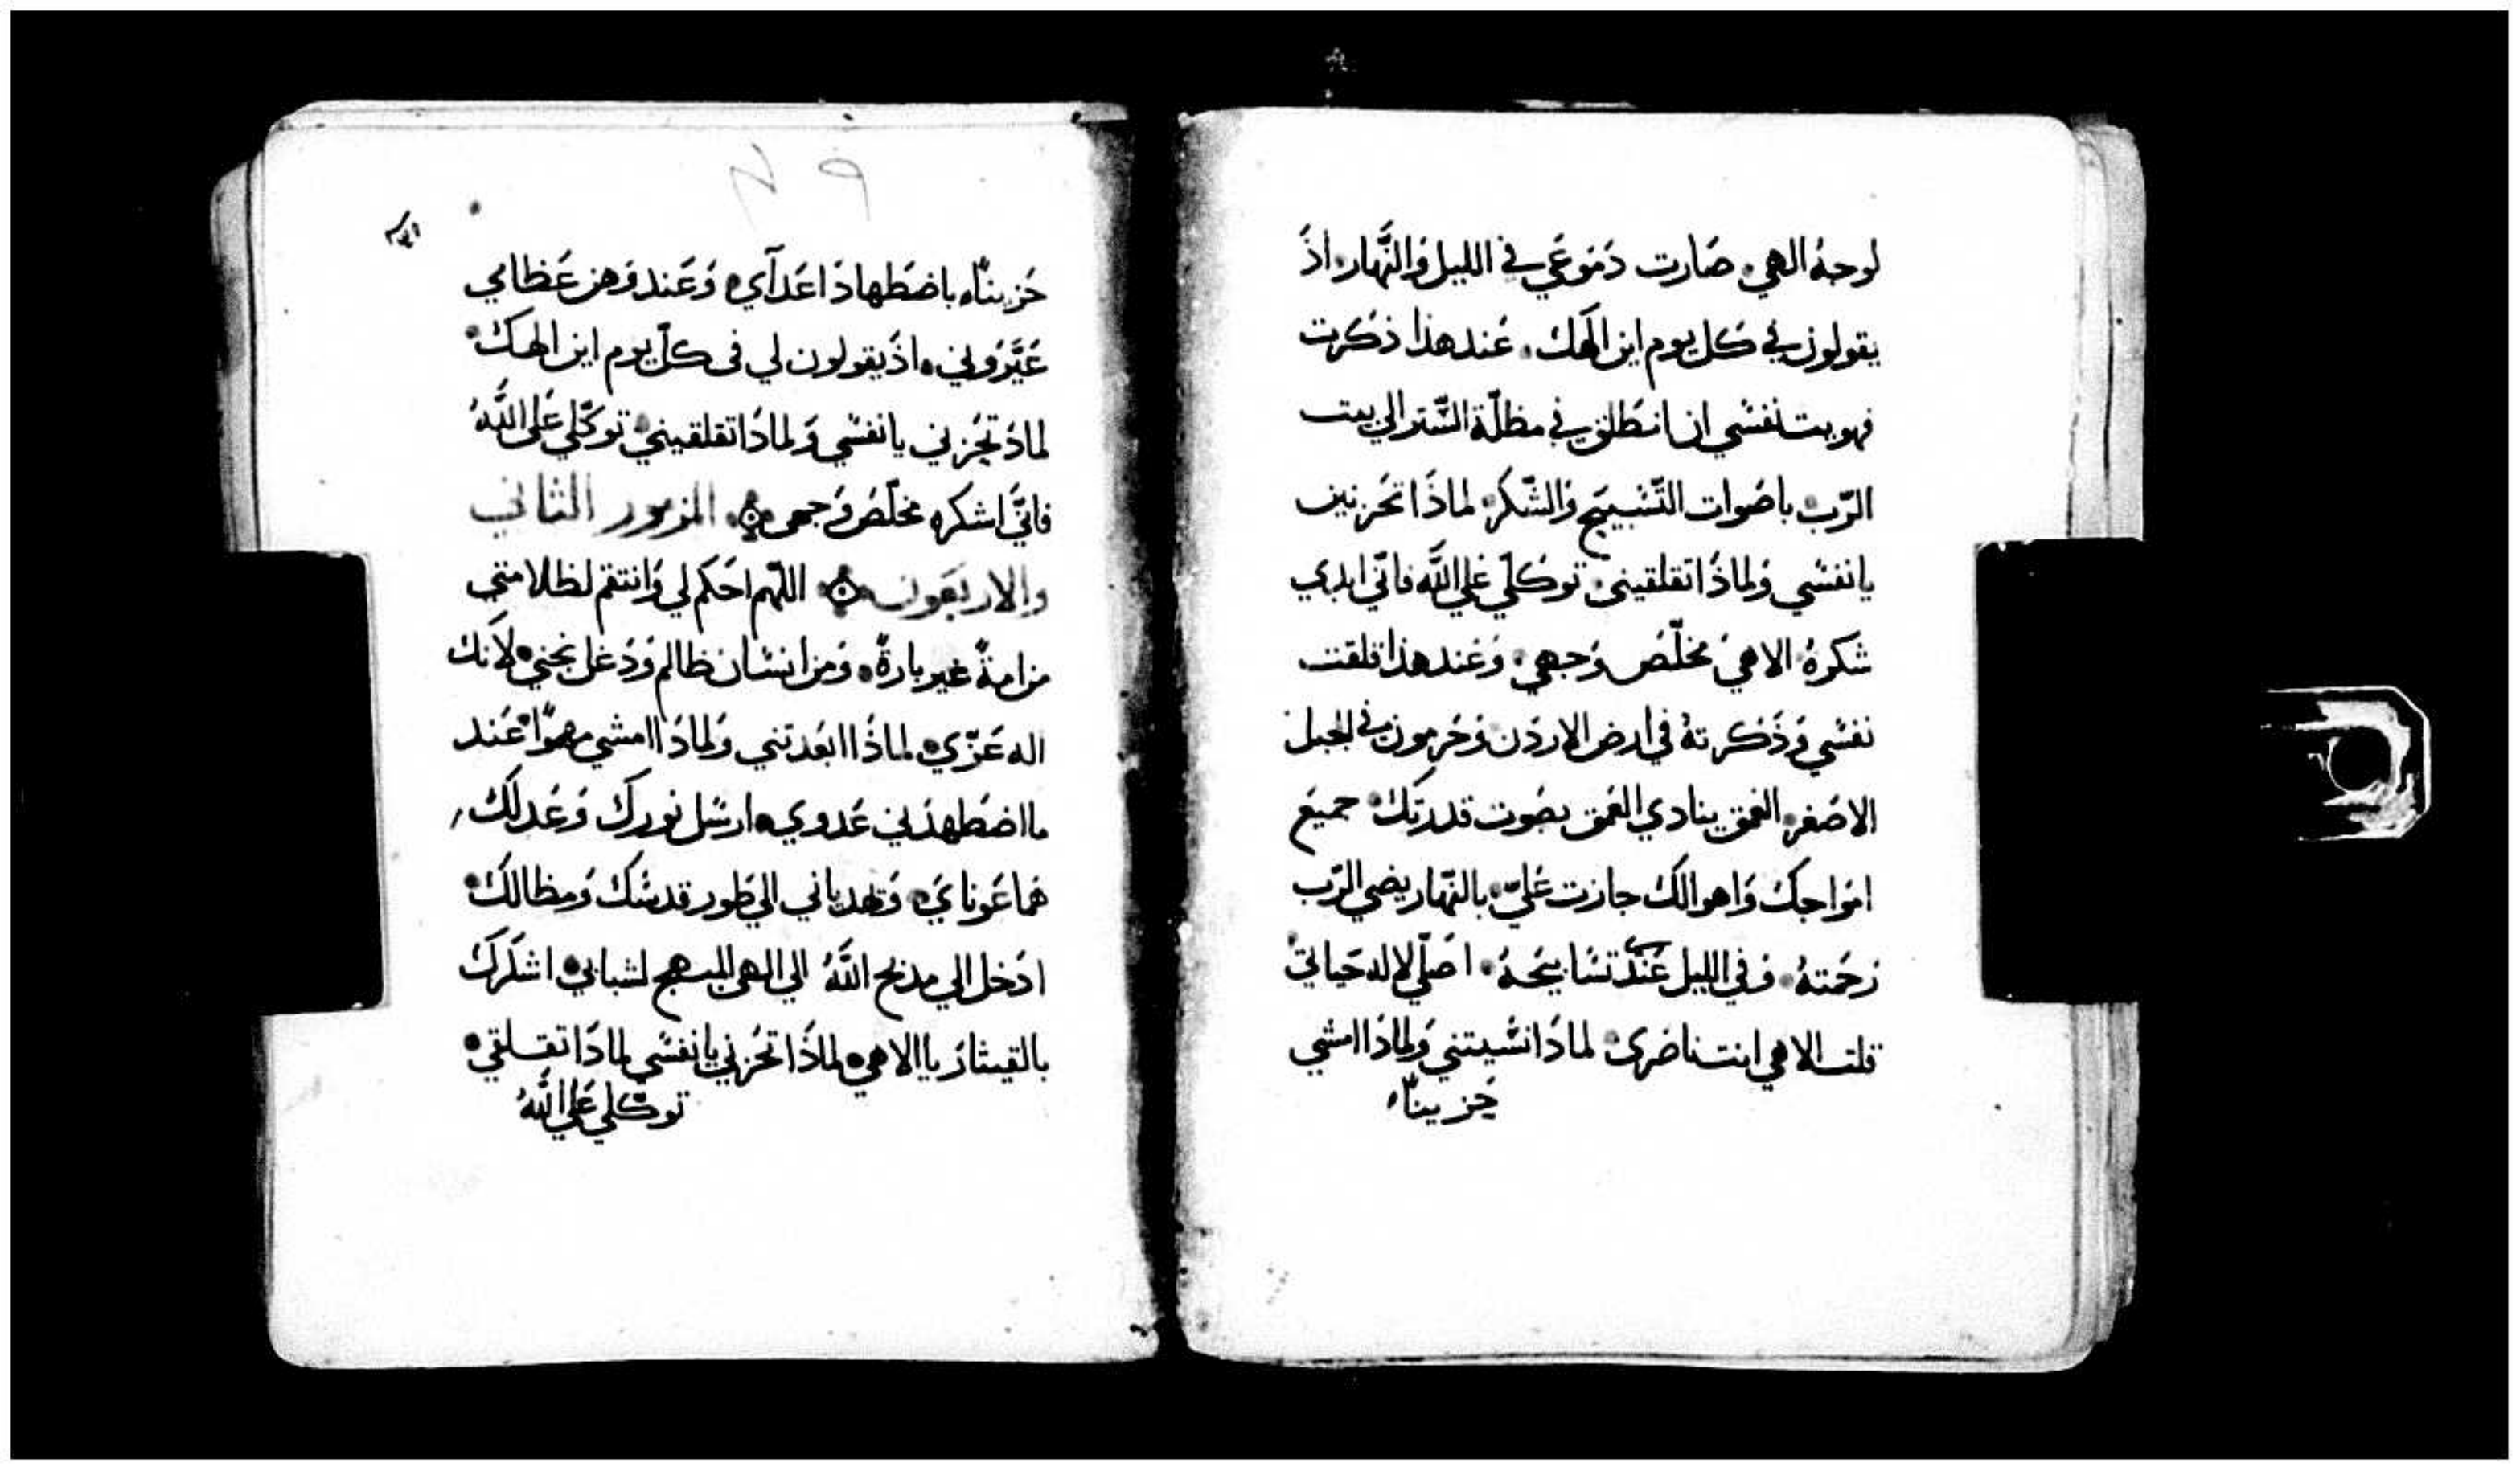 لوجهُ الهي. صَارت دَمَوعَي في الليل وَالنَّهار. اذَ
يقولون في كَل يوم اين الَهك. عَند هَذا ذكَرت
فهويت نَفسَي ان انطَلق في مظلّة السَّتر الي بيت
الرّب باصَوات التَّسَبيحَ وَالشّكر لماذَا تحَزنين
يانفسَي وَلماذَا تقلقيني. توكَلّي عَلي اللَّه فانّي ابدي
شَكرهُ الاهيُ مخلّصَ وَجهي. وَعَند هذا قلقت
نفسَي وَذَكَرتهُ في ارض الاردَن وَحَرمون في الجَبل
الاصَغر. العَمق ينادي العَمق بصَوت قدرتك جميعَ
امَواجك وَاهوالك جازت عَليّ. بالنّهار يضي الرّب
رَحَمتهُ. وَفي الليل عَند تسَابيحَهُ. اصَلّي لاله حَياتي
قلت الاهي انت ناصَري لماذَا نسَيتني وَلماذَا امشي
حَزيناً
حَزيناً باضطَهادَ اعَدآي وَعَند وَهن عَظامي
عَيَّرَوني. اذَ يقولون لي في كلّ يوم اين الهك
لماذَ تحَزني يانفسَي وَلماذَا تقلقيني توكّلي عَلي اللَّهُ
فانّي اشكره مخلّصَ وَجهي. المزمور الثاني
والاربَعَون اللّهم احَكم لي وَانتقم لظلامتي
من امةً غير بارةً. وَمن انسَان ظالم وَدَغل نجني لانك
اله عَزّي لماذَا ابعَدتني وَلماذَا امشي مهموًا عَند
ما اضطَهدَني عَدوي. ارسَل نورك وَعَدلك
هَما عَوناي وَتهَدياني الي طَور قدسَك وَمظالك
ادَخل الي مذبح اللَّهُ الي الهي المبهج لشبابي اشكرك
بالقيثارَ ياالاهي لماذَا تحَزني يانفسَي لماذَا تقلقي
توكّلي عَلي اللَّهُ